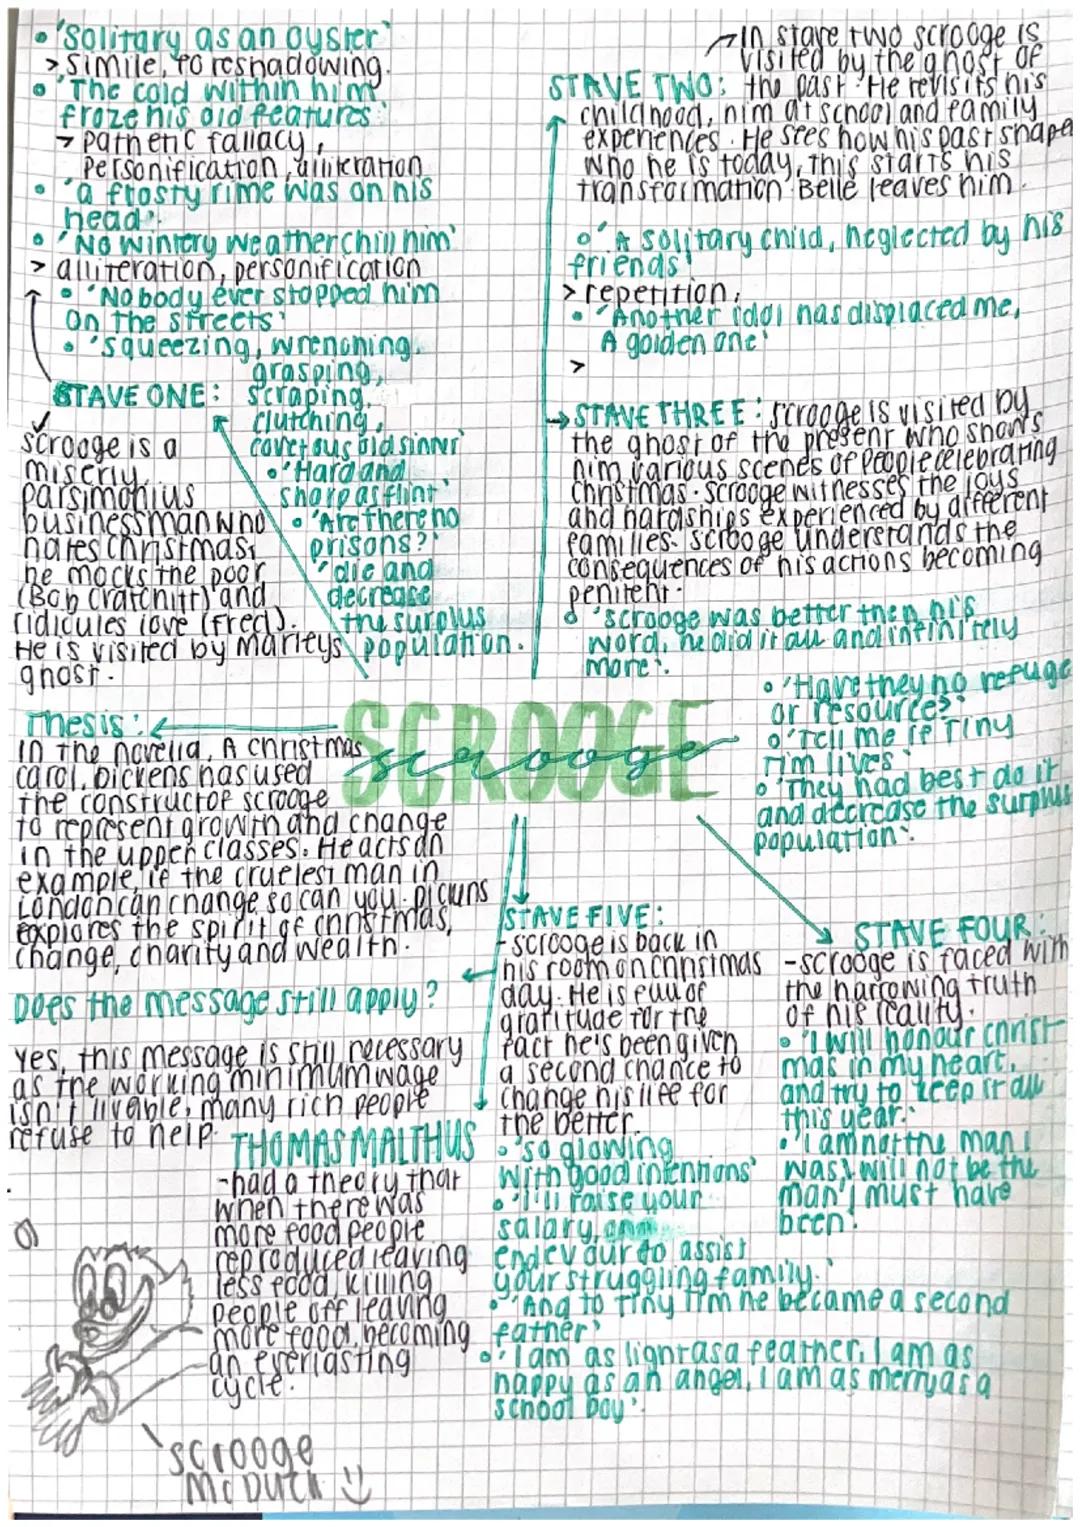 • 'Solitary as an oyster'
> Simile, foreshadowing.
• 'The cold within him
froze his old features'
→ pathetic fallacy,
personification, alliteration
• 'a frosty rime was on his
head'.
• 'No wintery weather chill him'
> alliteration, personification
• 'Nobody ever stopped him
on the streets'
• 'squeezing, wrenching,
grasping,
scraping,
clutching,
covetous old sinner'
• 'Hard and
sharp as flint'
• 'Are there no
prisons?'
'die and
decrease
the surplus
population.
STAVE ONE:
scrooge is a
miserly,
parsimonius
businessman who
hates christmas,
he mocks the poor
(Bob Cratchitt) and
ridicules love (fred).
He is visited by Marleys
ghost.
→ In stave two scrooge is
visited by the ghost of
STAVE TWO: the past. He revisits his
childhood, him at school and family
experiences. He sees how his past shape
who he is today, this starts his
transformation. Belle leaves him.
• 'A solitary child, neglected by his
friends'
> repetition,
• 'Another idol has displaced me,
A golden one'
>
→ STAVE THREE: scrooge is visited by
the ghost of the present who shows
him various scenes of people celebrating
christmas. scrooge witnesses the joys
and hardships experienced by different
families. scrooge understands the
consequences of his actions becoming
penitent.
• 'scrooge was better then his
word, he did it all and infinitely
more'.
• 'Have they no refuge
or resource?'
• 'Tell me if Tiny
Tim lives'
• 'They had best do it
and decrease the surplus
population'.
SCROOGE
scrooge
Thesis:
In the novella, A christmas
carol, Dickens has used
the construct of scrooge
to represent growth and change
in the upper classes. He acts an
example, if the cruelest man in
London can change so can you. Dickens
explores the spirit of christmas,
change, charity and wealth.
Does the message still apply?
Yes, this message is still necessary
as the working minimum wage
isn't livable, many rich people
refuse to help.
STAVE FIVE:
- scrooge is back in
his room on christmas
day. He is full of
gratitude for the
fact he's been given
a second chance to
change his life for
the better.
• 'so glowing
with good intentions'
• 'I'll raise your
salary, and
endevour to assist
your struggling family.'
• 'And to Tiny Tim he became a second
father'
• 'I am as light as a feather, I am as
happy as an angel, I am as merry as a
school boy'.
STAVE FOUR:
- scrooge is faced with
the harrowing truth
of his reality.
• 'I will honour christ-
mas in my heart,
and try to keep it all
this year.'
• 'I am not the man I
was, I will not be the
man I must have
been'
THOMAS MALTHUS
- had a theory that
when there was
more food people
reproduced leaving
less food, killing
people off leaving
more food, becoming
an everlasting
cycle.
scrooge
McDuck